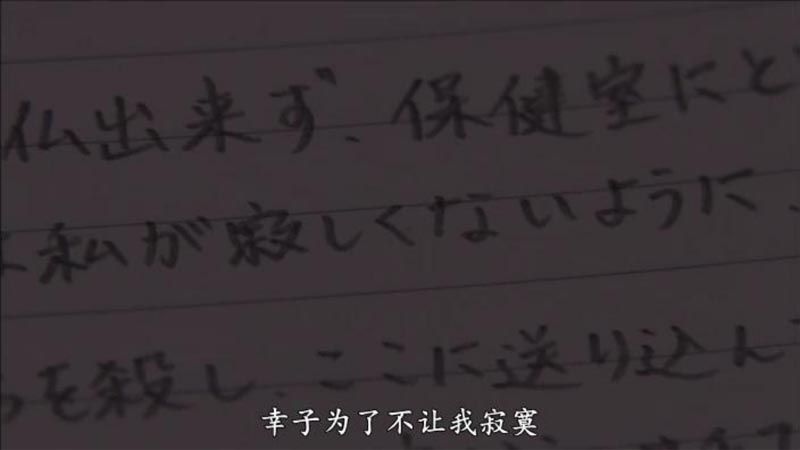 仏出来ず、保健室にと
私が寂しくないように、
を殺し、ここに送り込ん
幸子为了不让我寂寞